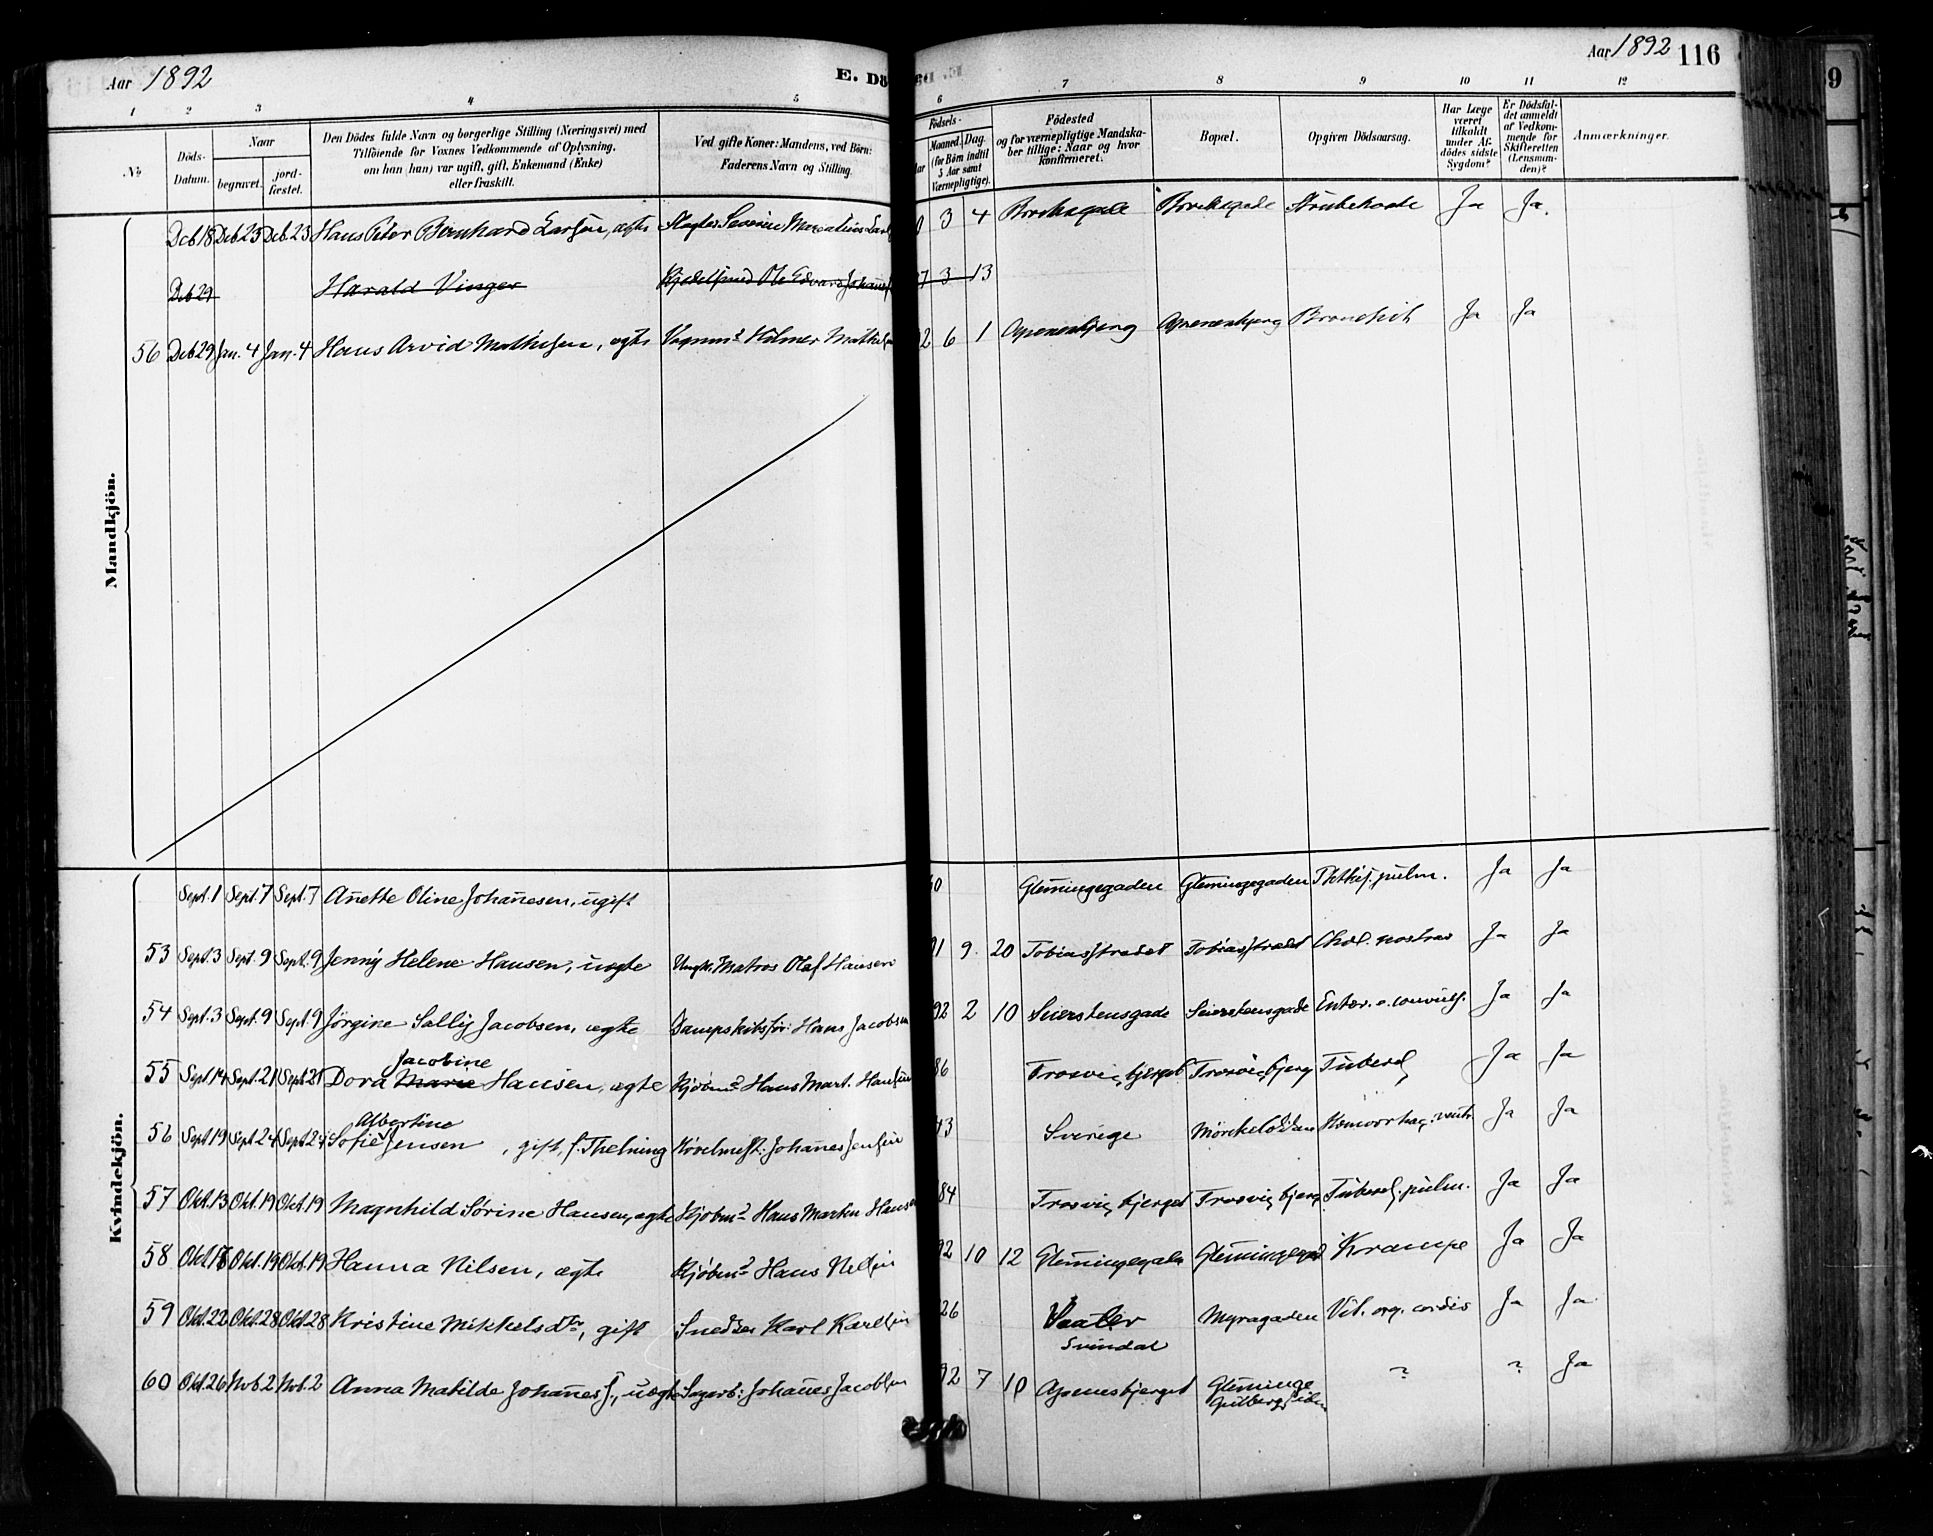 Aar 1892
E. Dö
Aar 1892 116
1 2 3 4 5 6 7 8 9 10 11 12
No
Döds-Datum.
Naar
begravet.
jord-fæstet.
Den Dödes fulde Navn og borgerlige Stilling (Næringsvei) med
Tilföiende for Voxnes Vedkommende af Oplysning,
om han (hun) var ugift, gift, Enkemand (Enke)
eller fraskilt.
Ved gifte Koner: Mandens, ved Börn:
Faderens Navn og Stilling.
Födsels-
Maaned. Dag.
(for Börn indtil
5 Aar samt
Værnepligtige).
Födested
og for værnepligtige Mandska-
ber tillige: Naar og hvor
konfirmeret.
Bopæl.
Opgiven Dödsaarsag.
Har Læge
været
tilkaldt
under Af-
dödes sidste
Sygdom?
Er Dödsfal-
det anmeldt
af Vedkom-
mende for
Skifteretten
(Lensman-
den)?
Anmærkninger.
Mandkjön.
Deb 18 Deb 23 Deb. 23 Hans Peter Bernhard Larsen, ægte Severin 3 4 Ja Ja.
Deb 29 Harald Vinger Kjedelsmed Ole Edvard 3 13
56 Deb 29 Jan. 4 Jan. 4 Hans Arvid Mathisen, ægte Vognm. Hilmer 92 6 1 Apenesbjerg Apenesbjerg Bronchit Ja Ja
Kvindekjön.
Sept. 1 Sept. 7 Sept. 7 Anette Oline Johannesen, ugift Glemmingegaden Glemmingegaden Phthis. pulm. Ja Ja
53 Sept. 3 Sept. 9 Sept. 9 Jenny Helene Hansen, uægte Ungk. Matros Olaf Hansen 91 9. 20 Tobiasstrædet Tobiasstrædet Chol. nostras Ja Ja
54 Sept. 3 Sept. 9 Sept. 9 Jörgine Sally Jacobsen, ægte Dampskibsför. Hans Jacobsen 92 2 10 Seierstensgade Seierstensgade Enter. c. convuls. Ja Ja
Jacobine
55 Sept 14 Sept. 21 Sept 21 Dora Marie Hansen, ægte Kjøbmd Hans Mart. Hansen 86 Trosvigbjerget Trosvigbjerg Tubercl. Ja Ja
Albertine
56 Sept 19 Sept 24 Sept 24 Sofie Jensen, gift, f. Thelning Johannes Jensen 43 Sverige Ja Ja
57 Okt. 13 Okt. 19 Okt. 19 Magnhild Sörine Hansen, ægte Kjøbmd Hans Martin Hansen 84 Trosvigbjerget Trosvigbjerg Tubercl. pulm. Ja Ja
58 Okt. Okt. 19 Okt. 19 Hanna Nilsen, ægte Kjøbmd Hans Nilsen 92 10 12 Krampe Ja Ja
59 Okt. 22 Okt. 28 Okt 28 Kristine Mikkelsdtr, gift Snedker Karl Karlsen 26 Vaaler Myragaden Vit. org. cordis Ja Ja
Svindal
60 Okt. 26 Nob. 2 Nob. 2 Anna Matilde Johannes, uægte Johannes Jacobsen 92 7 10 Apenesbjerget Glemminge ? ? Ja